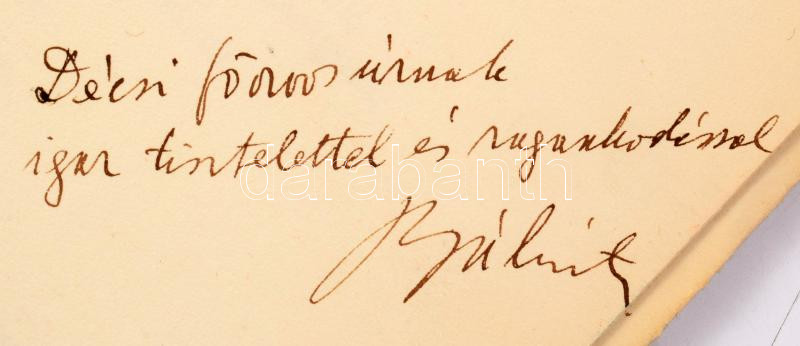 Décsi főorvos úrnak
igaz tisztelettel és ragaszkodással
darabanth
Bálint